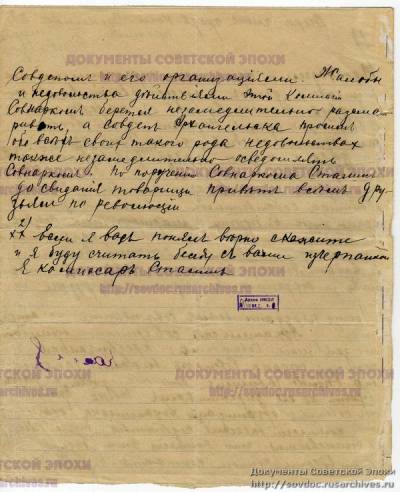 ДОКУМЕНТЫ СОВЕТСКОЙ ЭПОХИ
http://sovdoc.rusarchives.ru
Совдепом и его организациями Жалобы
и недовольства действиями этой Комиссии
Совнарком берется незамедлительно разсма
ривать, а совдеп Архангельска просит
обо всех своих такого рода недовольствах
также незамедлительно осведомлять
Совнарком. По поручению Совнаркома Сталин
до свидания товарищи привет всем дру
зьям по революции
2)
хх Если я вас понял верно скажите
и я буду считать беседу с вами исчерпанной
Комиссар Сталин
ДОКУМЕНТЫ СОВЕТСКОЙ ЭПОХИ
http://sovdoc.rusarchives.ru
Документы Советской Эпохи
http://sovdoc.rusarchives.ru